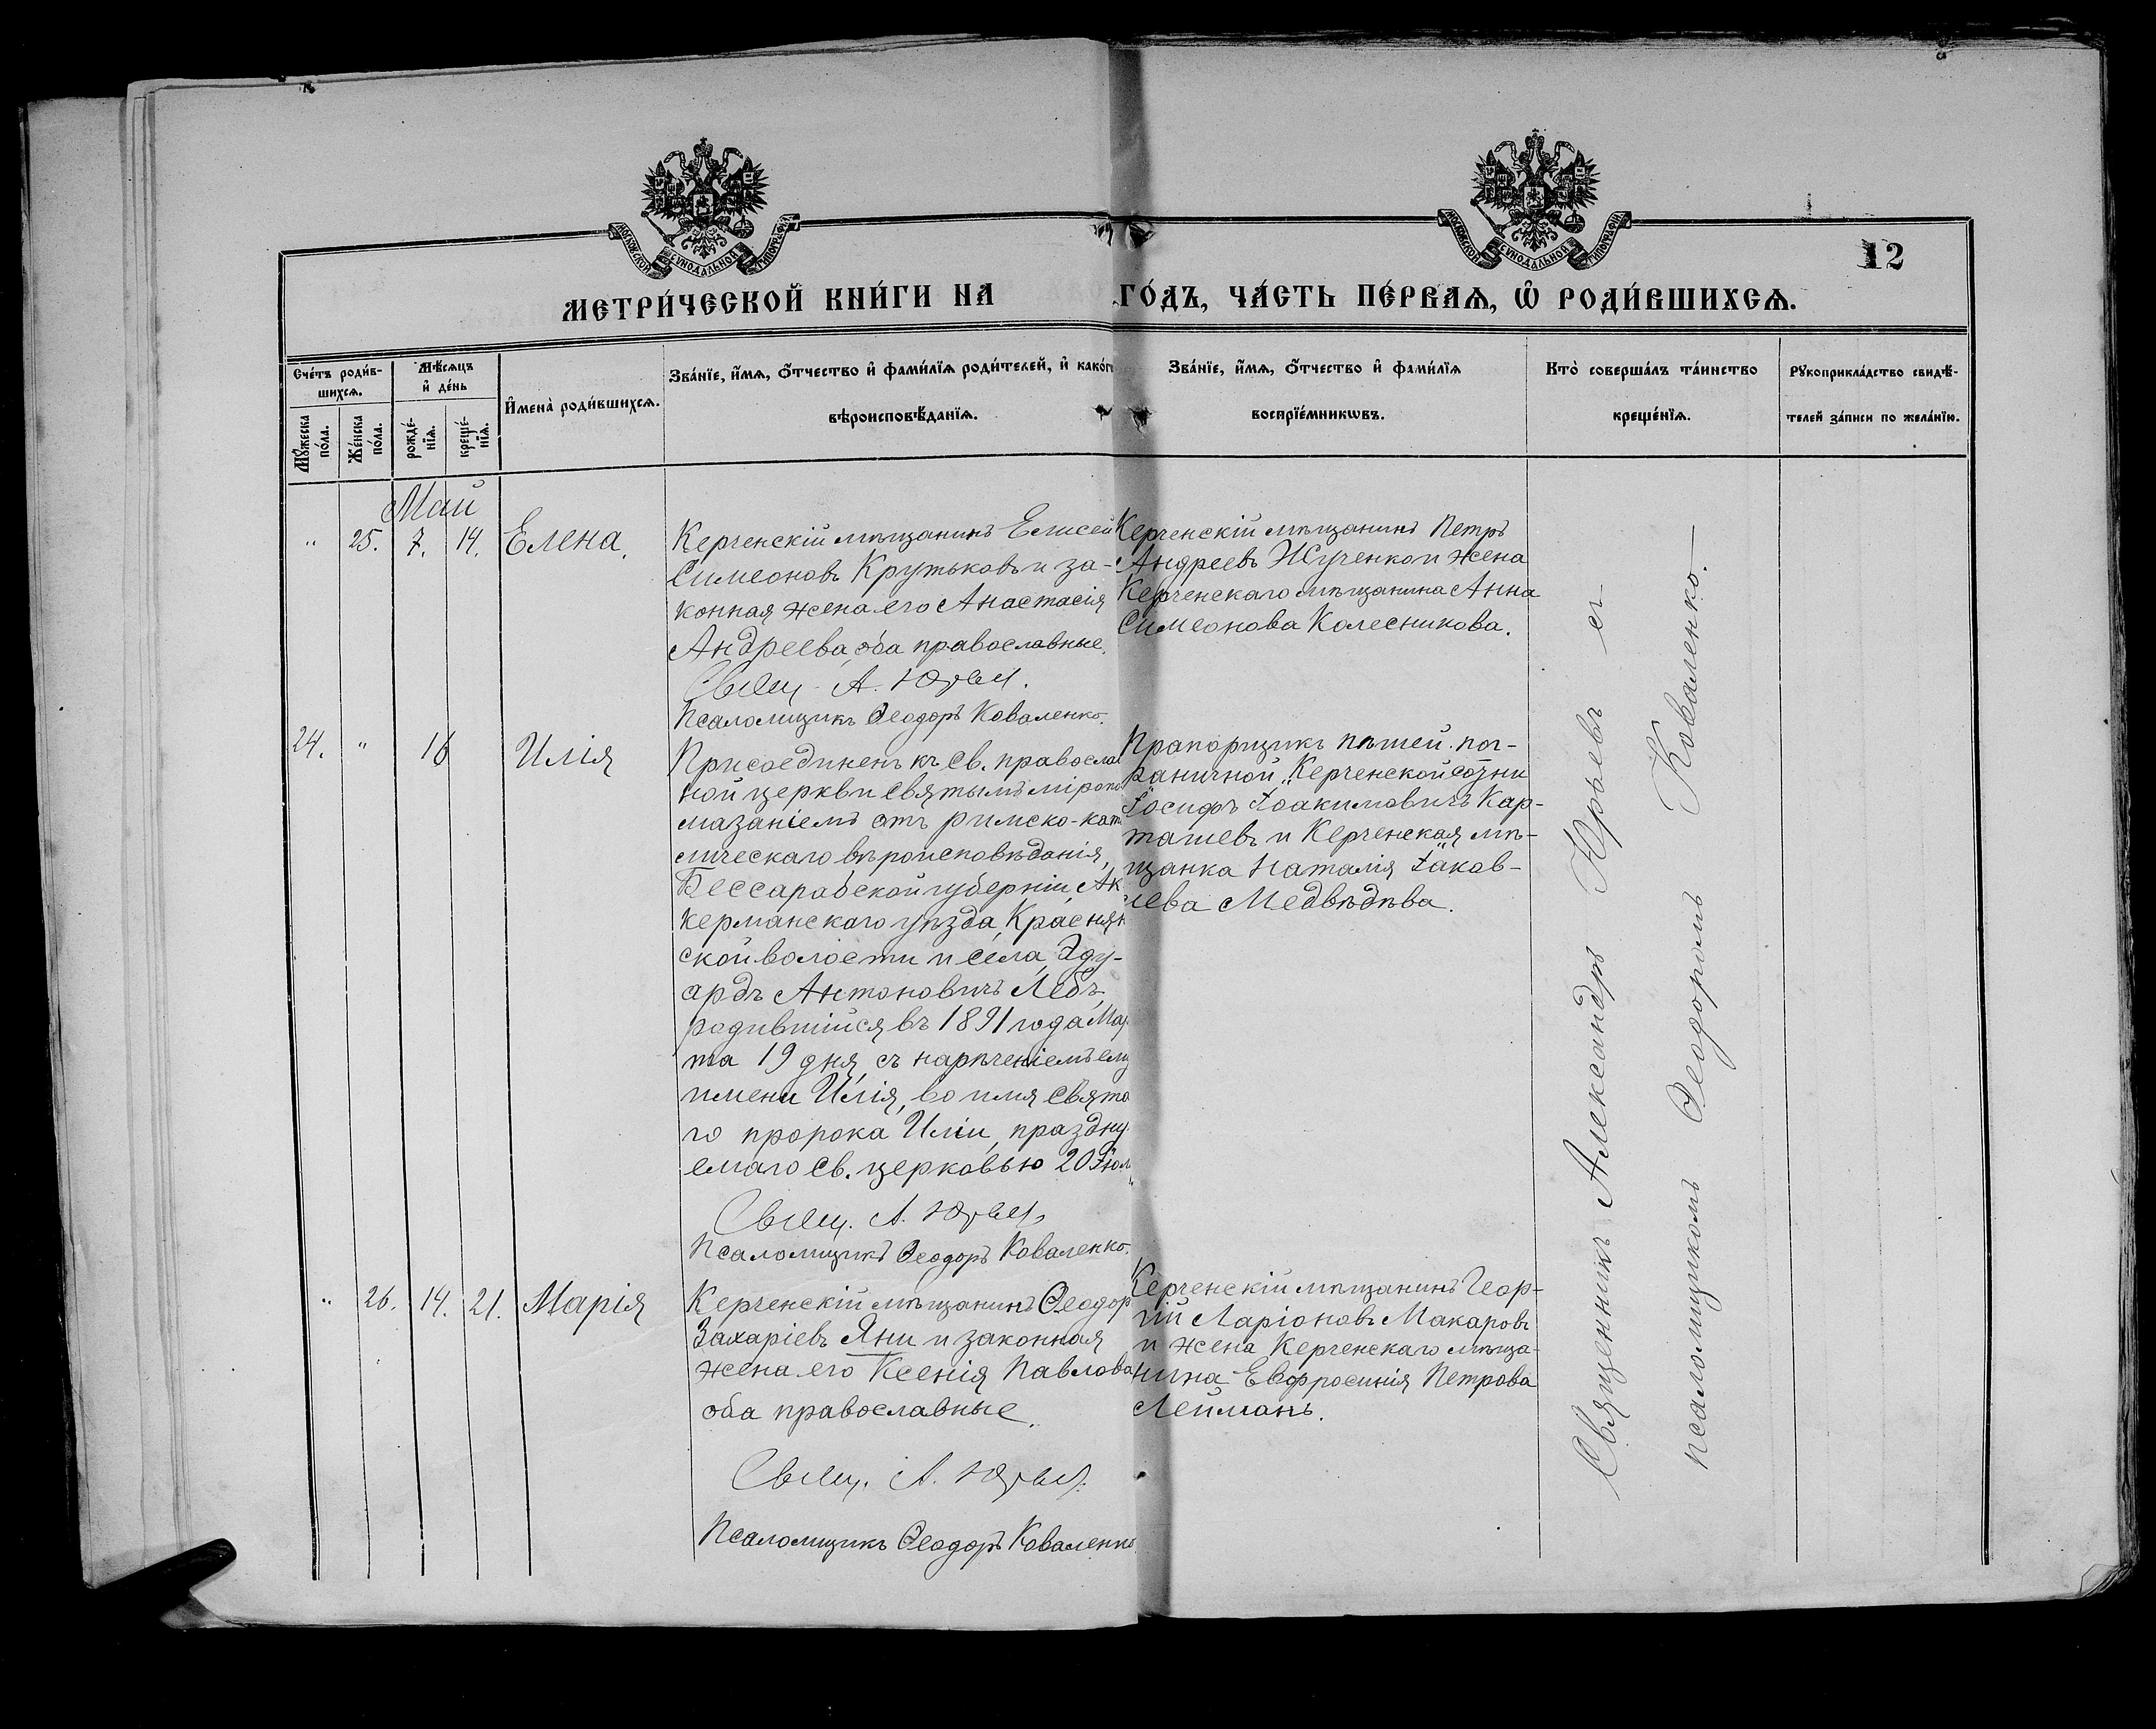 МОСКОВСКОЙ СѴНОДАЛЬНОЙ ТИПОГРАФІИ
МОСКОВСКОЙ СѴНОДАЛЬНОЙ ТИПОГРАФІИ
12
МЕТРИ́ЧЕСКОЙ КНИ́ГИ НА ГО́ДЪ, ЧА́СТЬ ПЕ́РВАѦ, Ѡ РОДИ́ВШИХСѦ.
Сче́тъ роди́в-
шихсѧ.
Мꙋ́жеска
по́ла.
Же́нска
по́ла.
Мѣ́сѧцъ
и҆ де́нь
рожде́-
нїѧ.
креще́-
нїѧ.
И҆мена̀ роди́вшихсѧ.
Зва́нїе, и҆́мѧ, ѻ҆́тчество и҆ фами́лїѧ роди́телей, и҆ како́гѡ
вѣроисповѣ́данїѧ.
Зва́нїе, и҆́мѧ, ѻ҆́тчество и҆ фами́лїѧ
воспрїе́мникѡвъ.
Кто̀ соверша́лъ та́инство
креще́нїѧ.
Рꙋкоприкла́дство свидѣ́-
телей за́писи по жела́нїю.
Май
" 25. 7. 14. Елена.
Керченскій мѣщанинъ Елисей
Симеоновъ Крутьковъ и за-
конная жена его Анастасія
Андреева, оба православные.
Свящ. А. Юрьев.
Псаломщикъ Ѳеодоръ Коваленко.
Керченскій мѣщанинъ Петръ
Андреевъ Жученко и жена
Керченскаго мѣщанина Анна
Симеонова Колесникова.
24. " 16 Илія
Присоединенъ къ св. православ
ной церкви святымъ міропо
мазаніемъ отъ римско-като
лическаго вѣроисповѣданія,
Бессарабской губерніи, Ак
керманскаго уѣзда, Краснян
ской волости и села, Эду-
ардъ Антоновичъ Лебъ,
родившійся въ 1891 года Мар
та 19 дня, съ нареченіемъ ему
имени Илія, во имя свято
го пророка Иліи, праздну
емаго св. церковью 20 Іюл
Свящ. А. Юрьев.
Псаломщикъ Ѳеодоръ Коваленко.
Прапорщикъ пѣшей пог-
раничной "Керченской" сотни
Іосифъ Іоакимовичъ Кар-
ташевъ и Керченская мѣ-
щанка Наталія Іаков-
лева Медвѣдѣва.
" 26. 14. 21. Марія
Керченскій мѣщанинъ Ѳеодор
Захаріевъ Яни и законная
жена его Ксенія Павлова
оба православные.
Свящ. А. Юрьев.
Псаломщикъ Ѳеодоръ Коваленко
Керченскій мѣщанинъ Геор-
гій Ларіоновъ Макаровъ
и жена Керченскаго мѣща-
нина Евфросинія Петрова
Лейманъ.
Священникъ Александръ Юрьевъ съ
псаломщикомъ Ѳеодоромъ Коваленко.